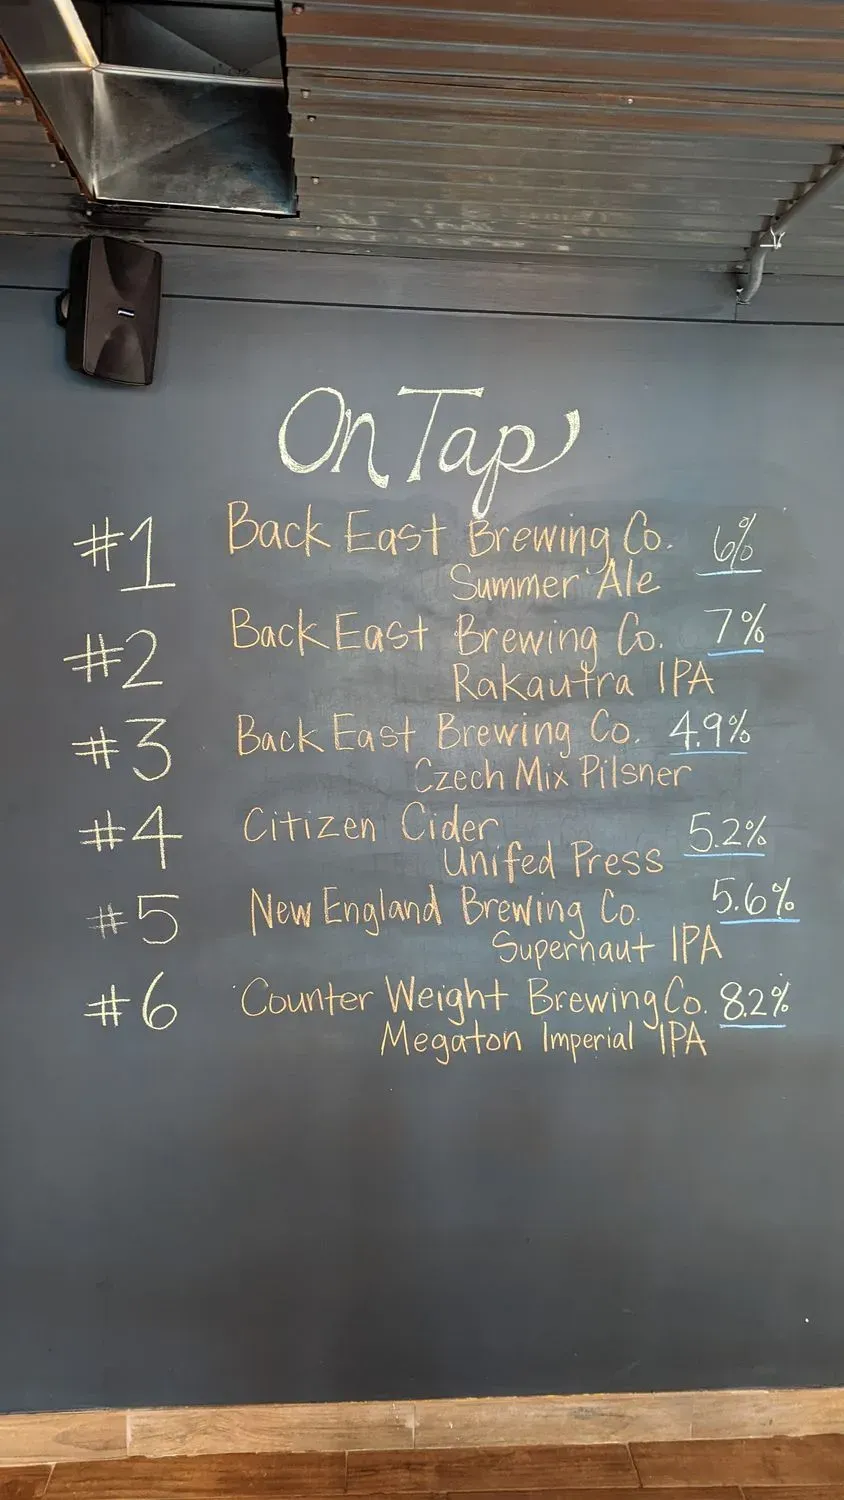 On Tap
#1 Back East Brewing Co. 6%
Summer Ale
#2 Back East Brewing Co. 7%
Rakautra IPA
#3 Back East Brewing Co. 4.9%
Czech Mix Pilsner
#4 Citizen Cider 5.2%
Unifed Press
#5 New England Brewing Co. 5.6%
Supernaut IPA
#6 Counter Weight Brewing Co. 8.2%
Megaton Imperial IPA